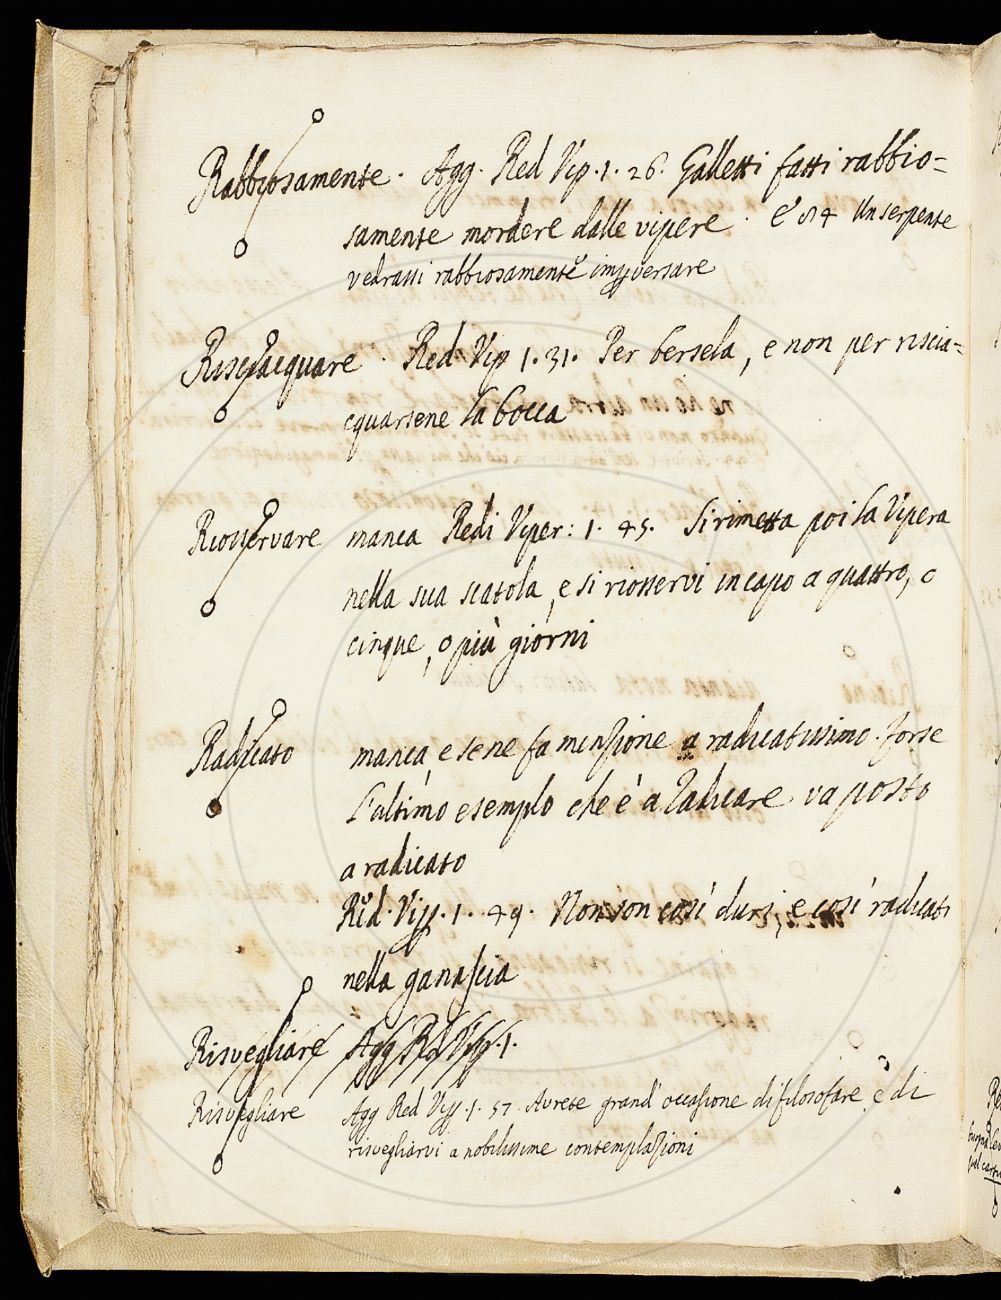 Rabbiosamente. Agg. Red Vip. 1. 26. Galletti fatti rabbio=
samente mordere dalle vipere. e 84 Un serpente
vedrassi rabbiosamente imperversare
Risciacquare. Red. Vip 1. 31. Per bersela, e non per riscia=
cquarsene la bocca
Riosservare manca Redi Viper: 1. 45. Si rimetta poi la Vipera
nella sua scatola, e si riosservi in capo a quattro, o
cinque, o più giorni
Radicato manca, e se ne fa menzione a radicatissimo. forse
l'ultimo esemplo che è a Radicare va posto
a radicato
Red. Vip. 1. 49. Non son così duri, e così radicati
nella ganascia
Risvegliare Agg Red Vip. 1.
Risvegliare Agg Red Vip. 1. 57. Avrete grand' occasione di filosofare e di
risvegliarvi a nobilissime contemplazioni